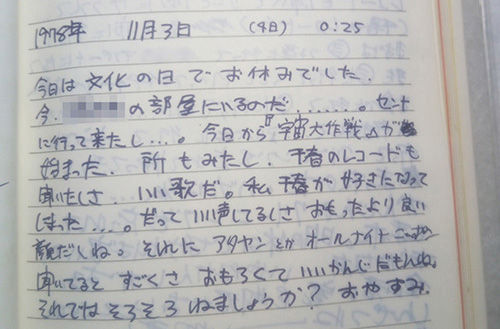 1978年 11月3日 (4日) 0:25
今日は 文化の日で お休みでした.
今. の部屋にいるのだ.......。セント
に行って来たし...。今日から『宇宙大作戦』が
始まった. 所もみたし. 千春のレコードも
聞いたしさ.. いい歌だ。私 千春が 好きになって
しまった...。だって いい声してるしさ おもったより良い
顔だしね。それに アタヤンとか オールナイト
聞いてると すごくさ おもろくて いいかんじだもんね。
それではそろそろ ねましょうか? おやすみ.